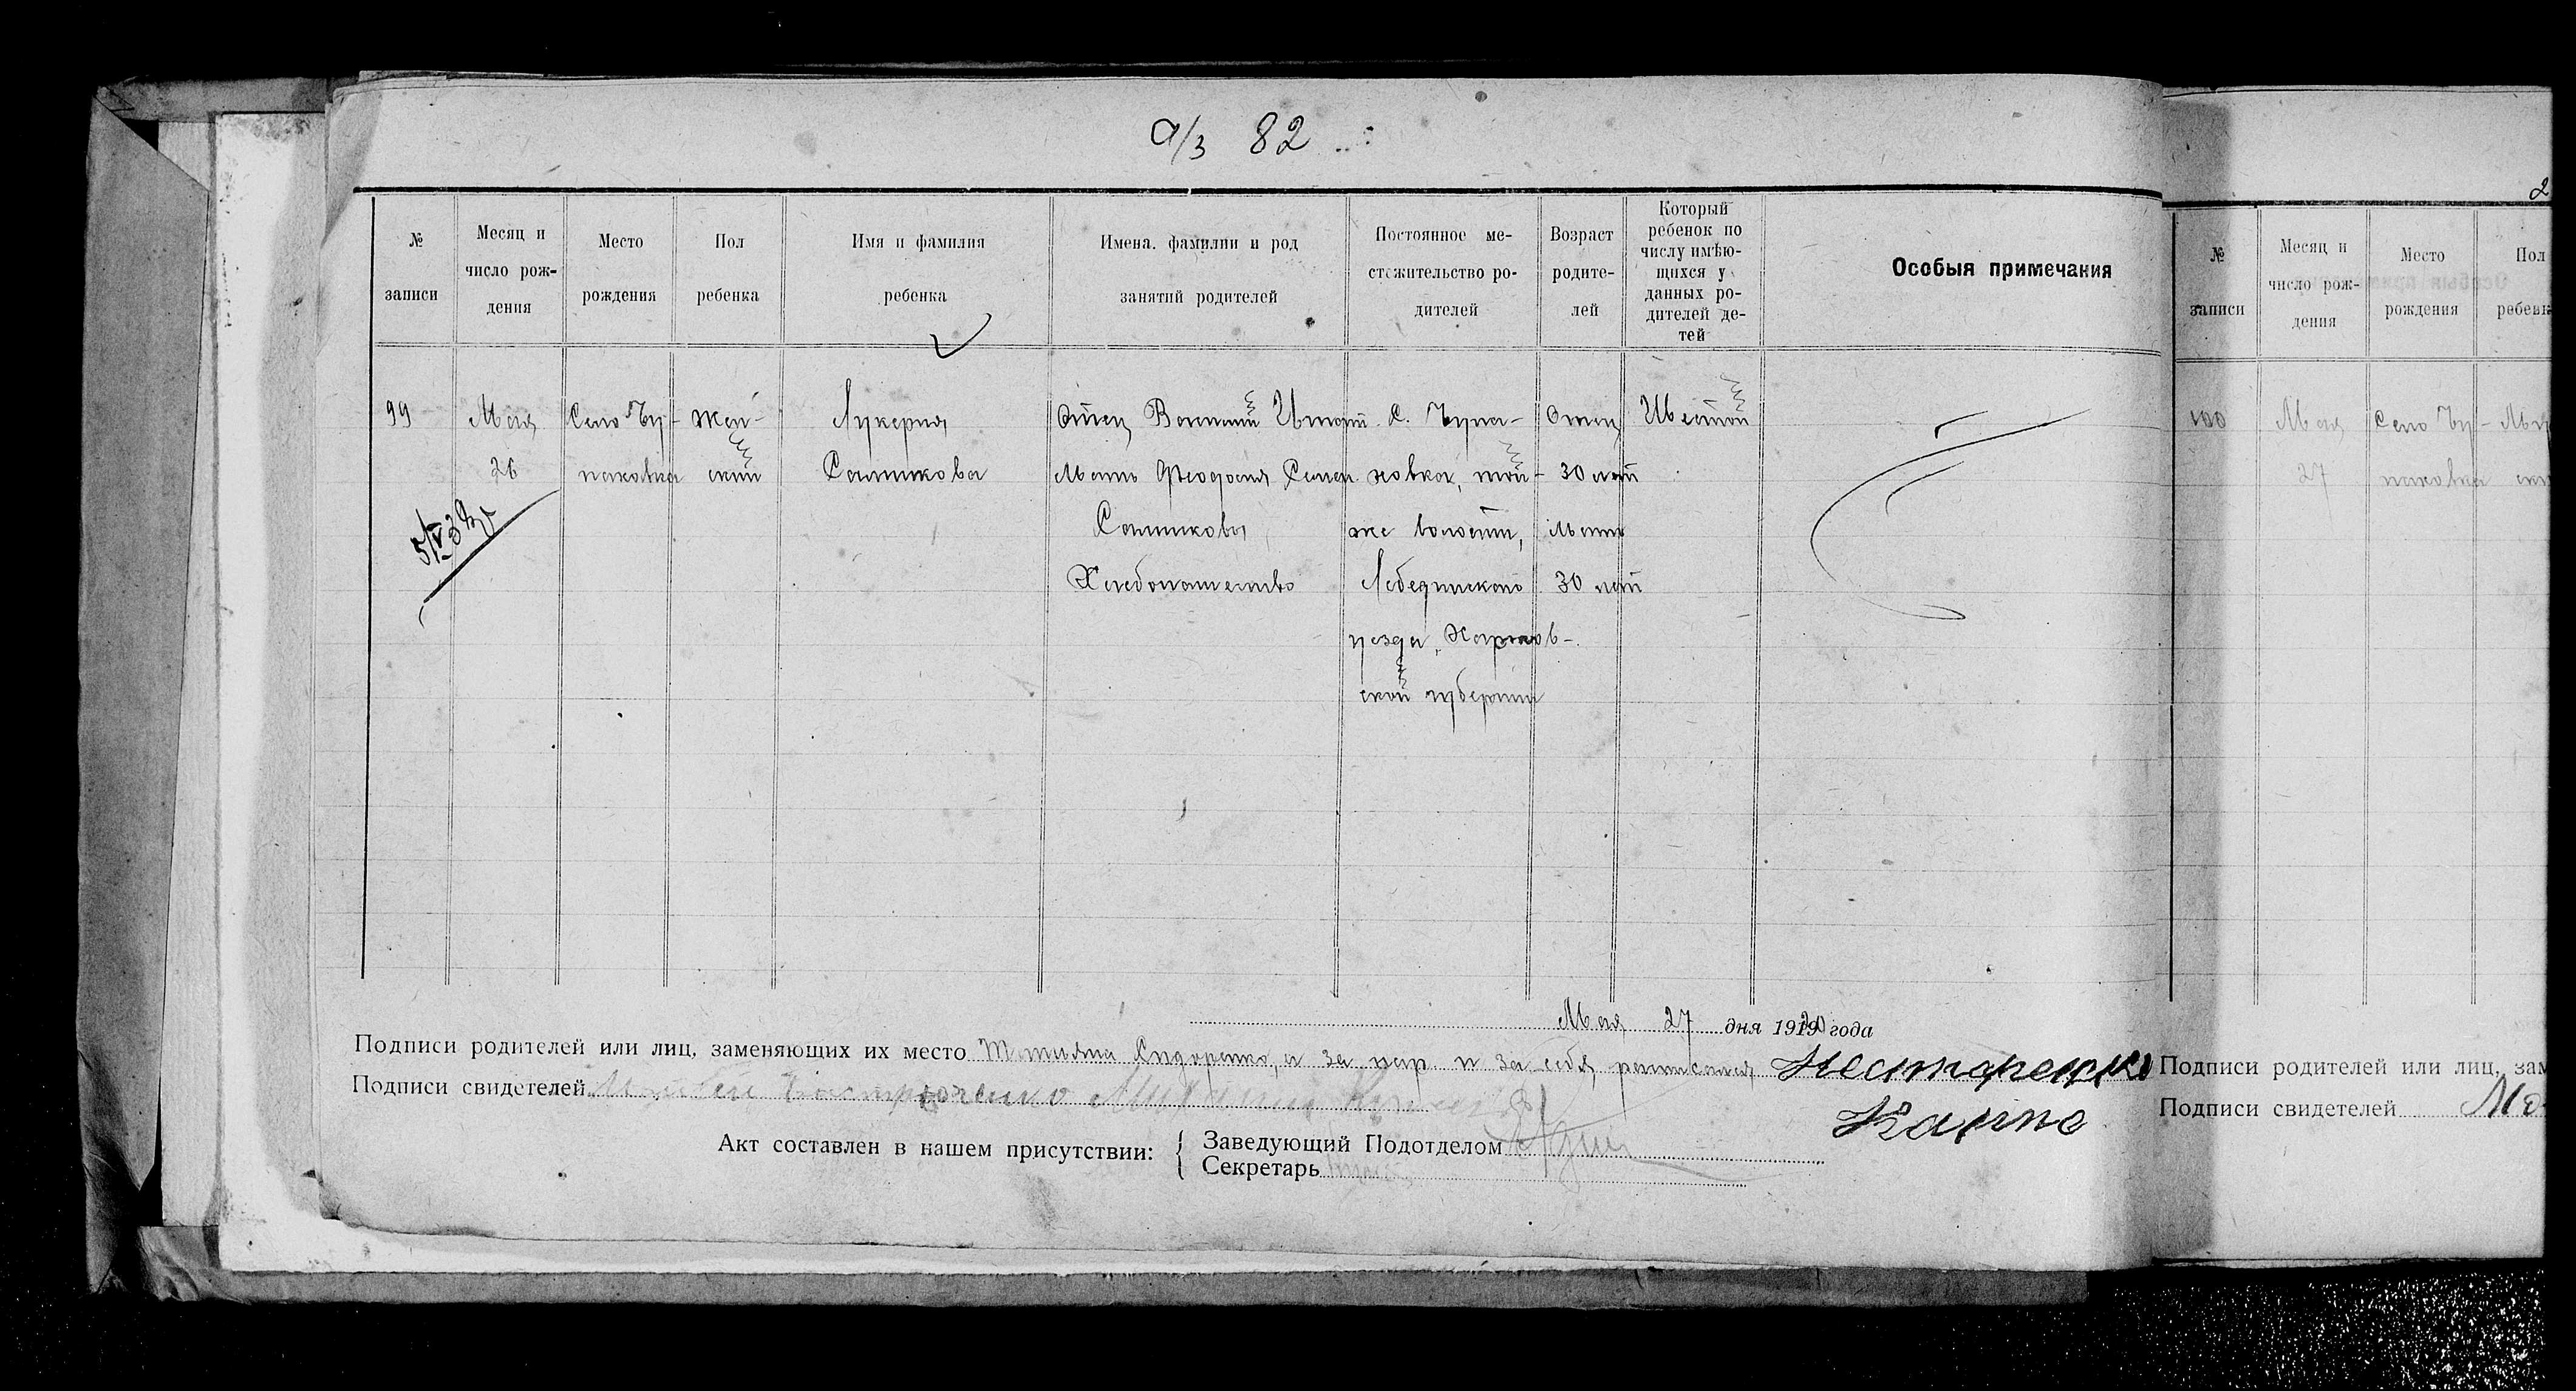 а/з 82
№ записи
Месяц и число рождения
Место рождения
Пол ребенка
Имя и фамилия ребенка
Имена, фамилии и род занятий родителей
Постоянное местожительство родителей
Возраст родителей
Который ребенок по числу имѣющихся у данных родителей детей
Особыя примечания
99
Мая
26
Село Чу-
паховка
Жен-
ский
Лукерия
Салтикова
Отец
Мать Феодосия
Салтикова
Хлебопашество
С. Чупа-
ховка, той-
же волости,
Лебединскаго
уезда, Харьков-
ской губернии
Отец
30 лет
мать
30 лет
Шестой
Мая 27 дня 1920 года
Подписи родителей или лиц, заменяющих их место Татьяна Сидоренко, а за негр. и за себя расписался Нестеренко
Карпо
Подписи свидетелей
Акт составлен в нашем присутствии:
Заведующий Подотделом
Секретарь
2
№ записи
Месяц и число рождения
Место рождения
Пол
100
Мая
27
Село Чу-
паховка
Подписи родителей или лиц, зам
Подписи свидетелей